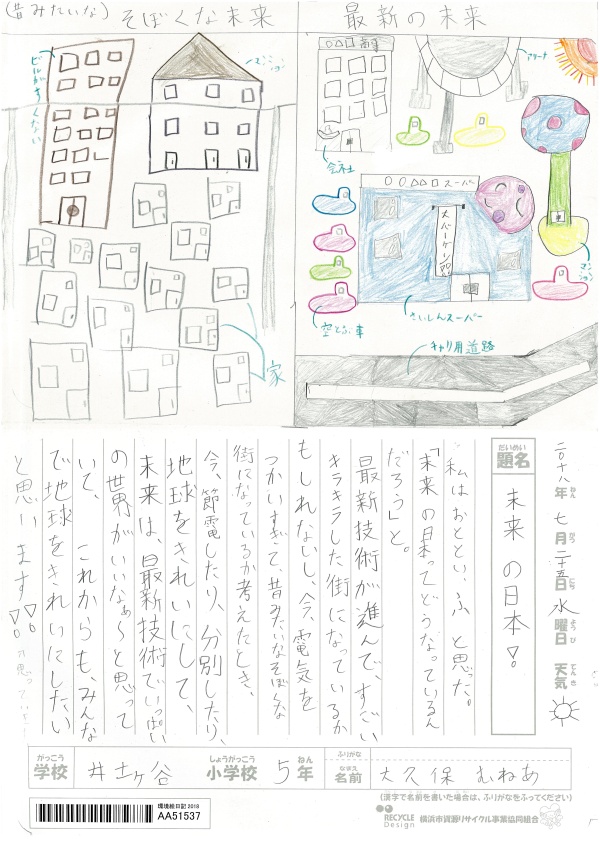 (昔みたいな)そぼくな未来
最新の未来
ビルがすくない
マンション
家
○△□商事
アリーナ
会社
○○△△□スーパー
スーパーケンタ
マンション
空とぶ車
さいしんスーパー
キャリ用道路
二〇一八年 七月二十五日 水曜日 天気
ねん がつ にち ようび てんき
だいめい
題名 未来の日本!
私はおととい、ふと思った。
「未来の日本ってどうなっているん
だろう」と。
最新技術が進んで、すごい
キラキラした街になっているか
もしれないし、今、電気を
つかいすぎて、昔みたいなそぼくな
街になっているか考えたとき、
今、節電したり、分別したり、
地球をきれいにして、
未来は、最新技術でいっぱい
の世界がいいなぁ〜と思って
いて、これからも、みんな
で地球をきれいにしたい
と思います!!
がっこう しょうがっこう ねん ふりがな
学校 井土ヶ谷 小学校 5年 なまえ 名前 大久保 むねあ
(漢字で名前を書いた場合は、ふりがなをふってください)
環境絵日記2018
AA51537
RECYCLE Design
横浜市資源リサイクル事業協同組合